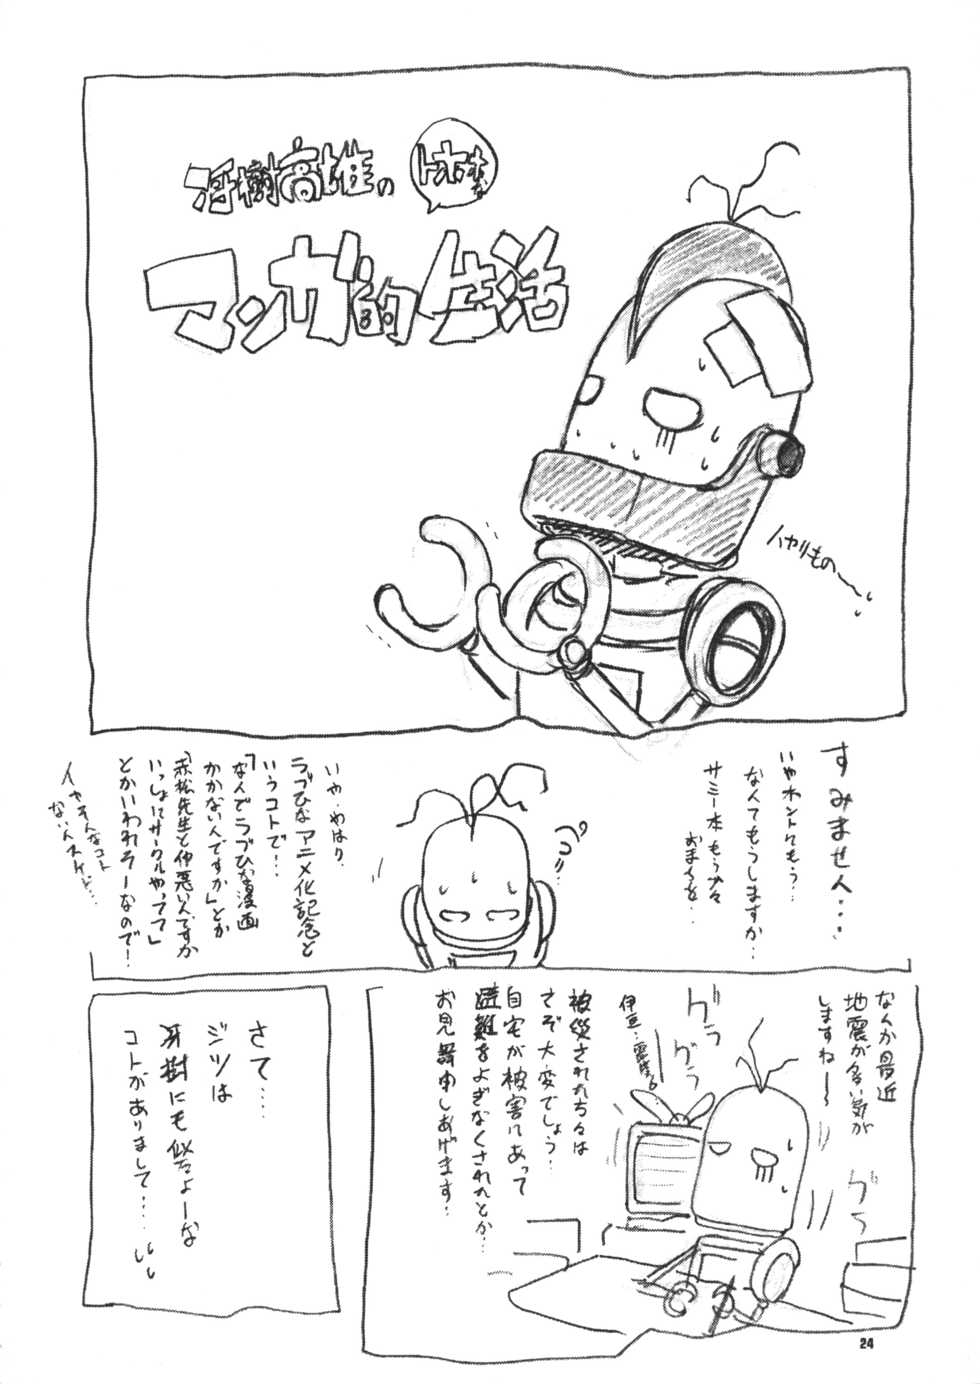 冴樹高雄の
トホホな
マンガ的生活
ハヤリもの〜
すみません・・・・
いやホントにもう…
なんてもうしますか…
サミー本もう少々
おまちを…
ペコリ…
いや、やはり、
ラブひなアニメ化記念と
いうコトで!
「なんでラブひな漫画
かかない人ですか」とか
「赤松先生と仲悪い人ですか
いっしょにサークルやってて」
とかいわれそーなので!
イヤそんなコト
ないんスケド…
なんか最近
地震が多い気が
しますね〜
グラ
グラ
グラ
被災された方々は
さぞ大変でしょう…
自宅が被害にあって
避難をよぎなくされたとか…
お見舞申しあげます…
さて……
ジツは
冴樹にも似たよーな
コトがありまして……
24